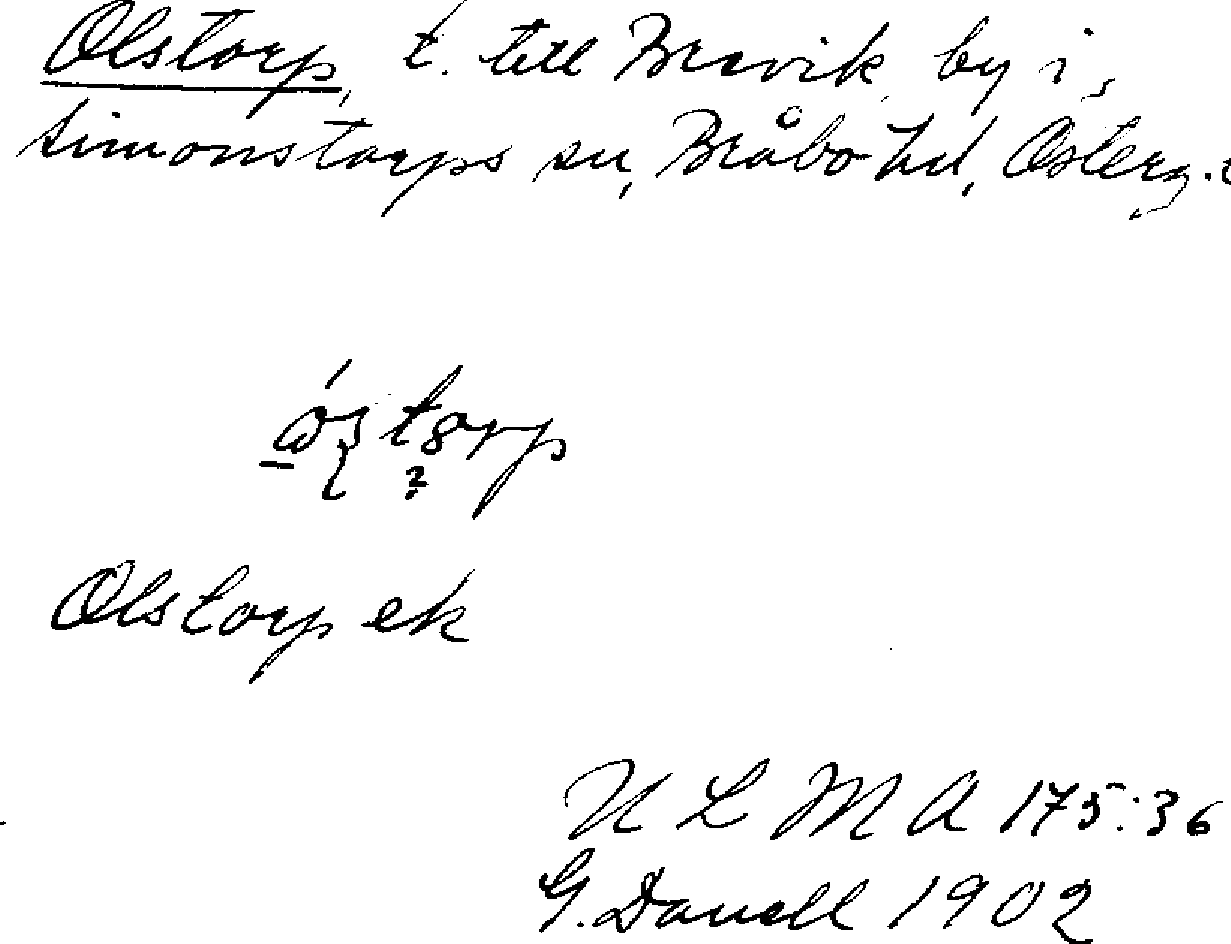 Olstorp, t. till Bravik by i
Simonstorps sn, Bråbo hd, Österg.
Olstorp ek
ULMA 175:36
G. Danell 1902